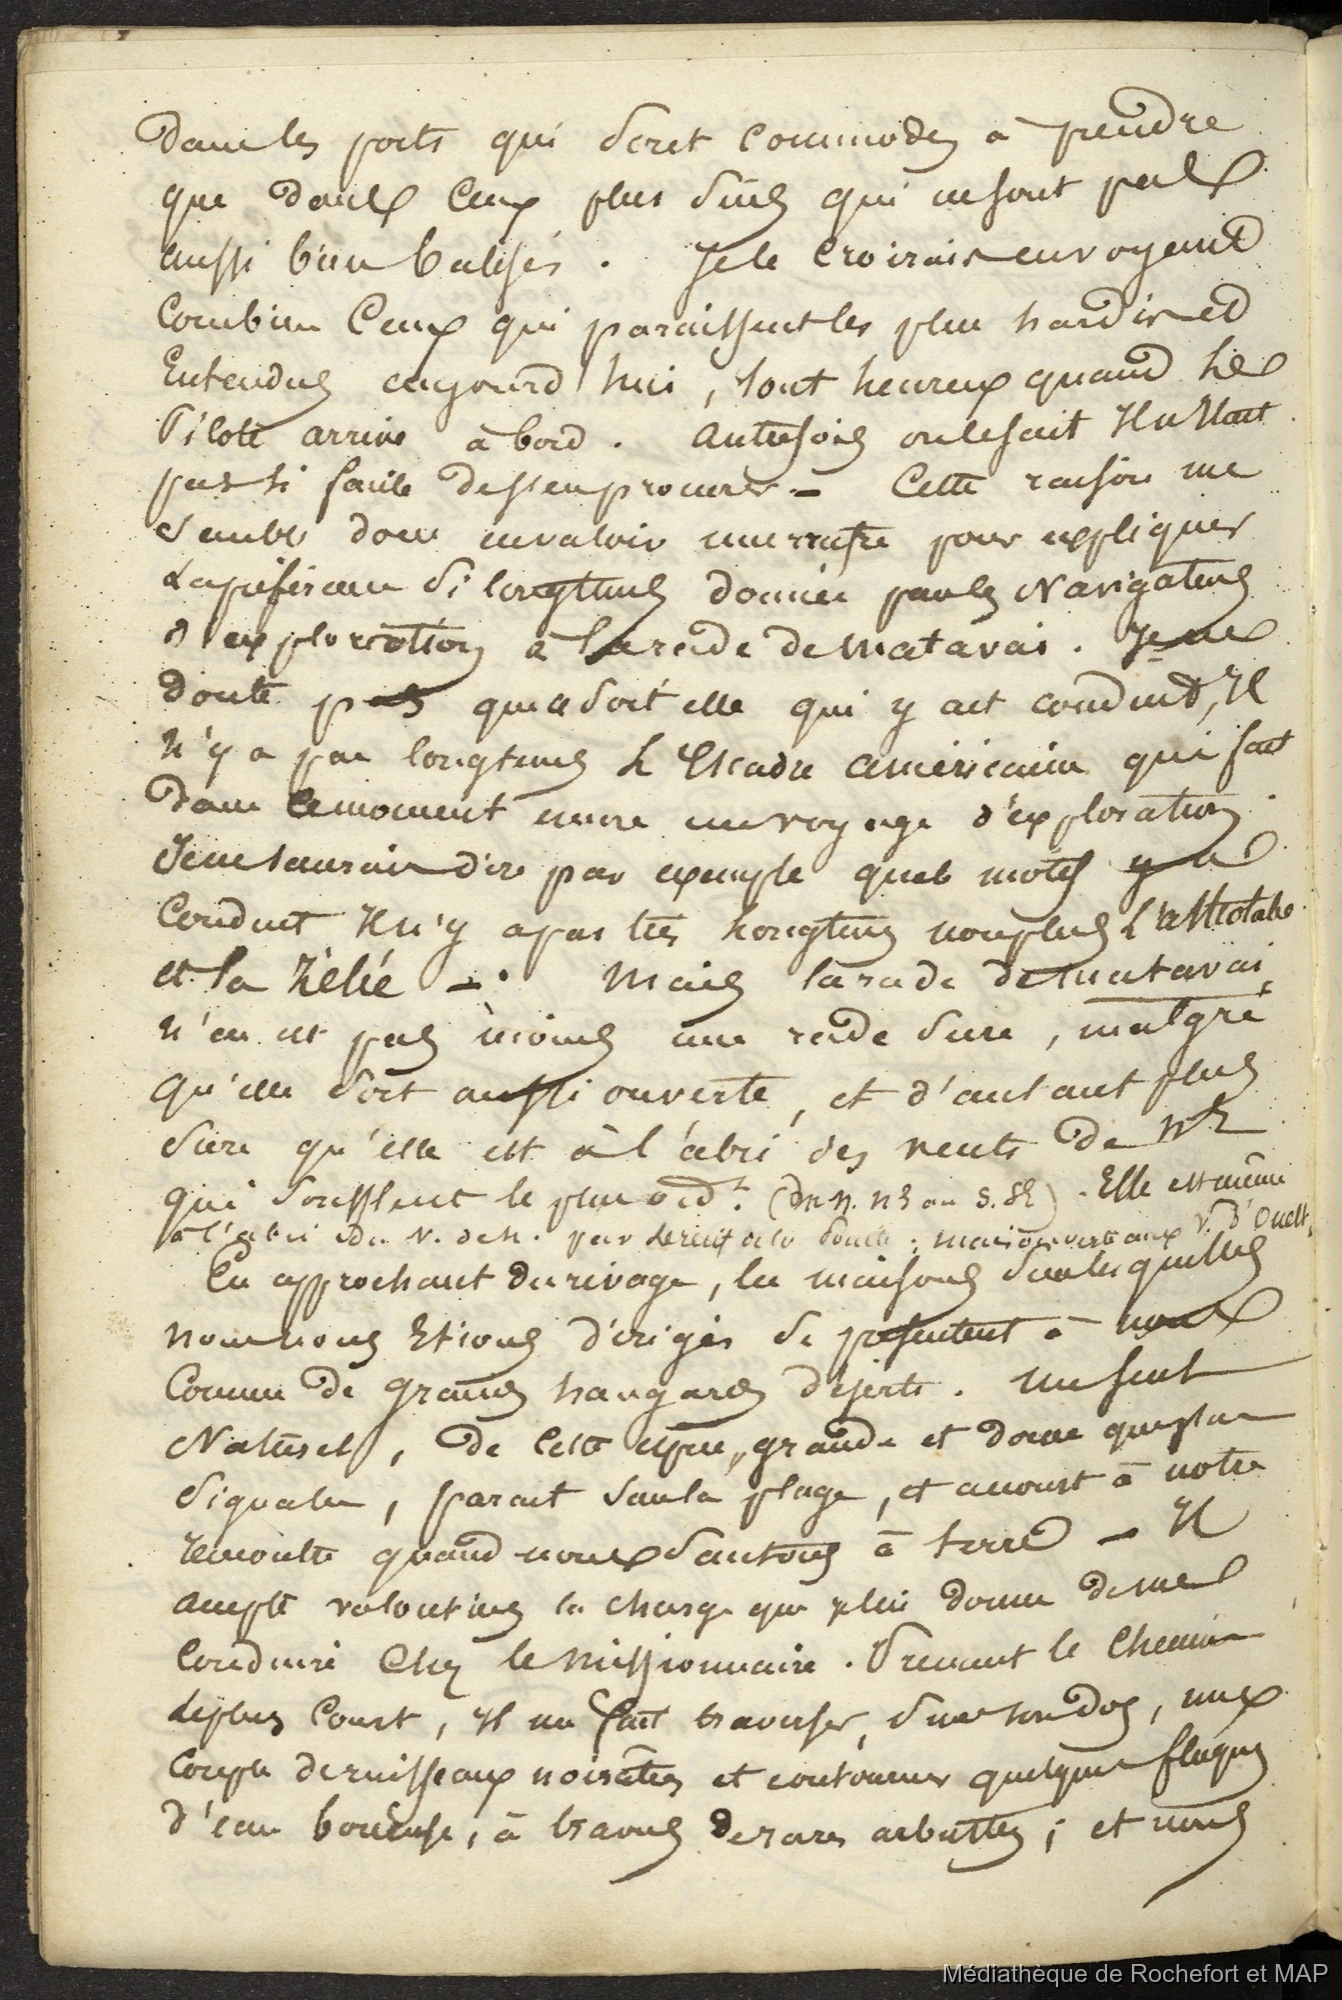 dans les ports qui soient commodes à prendre
que dans ceux plus sûrs qui ne sont pas
aussi bien balisés. Je le croirais en voyant
combien ceux qui paraissent les plus hardis et
Entendus aujourd'hui, sont heureux quand le
Pilote arrive à bord. autrefois on le sait Il n'était
pas si facile de s'en procurer - Cette raison me
semble donc en valoir une autre pour expliquer
La préférence si longtems donnée par les Navigateurs
d'exploration à la rade de Matavai. Je ne
doute pas que ce soit elle qui y ait conduit, Il
n'y a pas longtems L'Escadre américaine qui fait
dans ce moment encore un voyage d'exploration.
Je ne saurais dire par exemple quels motifs y a
Conduit Il n'y a pas très longtems non plus L'astrolabe
et la Zélée -. Mais la rade de Matavai
n'en est pas moins une rade sure, malgré
qu'elle soit aussi ouverte, et d'autant plus
sûre qu'elle est à l'abri des vents de NE
qui soufflent le plus ord.t (du N. NE au S. SE). Elle est même
à l'abri du V. de N. par le récif de la pointe; mais ouverte aux V. d'Ouest.
En approchant du rivage, les maisons sur lesquelles
nous nous Etions dirigés se présentent à nous
Comme de grands hangards déserts. Un seul
Naturel, de cette espèce grande et douce
signalée, parait sur la plage, et accourt à notre
rencontre quand nous sautons à terre - Il
accepte volontiers la charge que je lui donne de me
Conduire Chez le Missionnaire. Prenant le Chemin
Le plus Court, Il me fait traverser, sur son dos, une
couple de ruisseaux noirâtres et contourner quelques flaques
d'eau boueuse, à travers de rares arbustes; et nous
Médiathèque de Rochefort et MAP